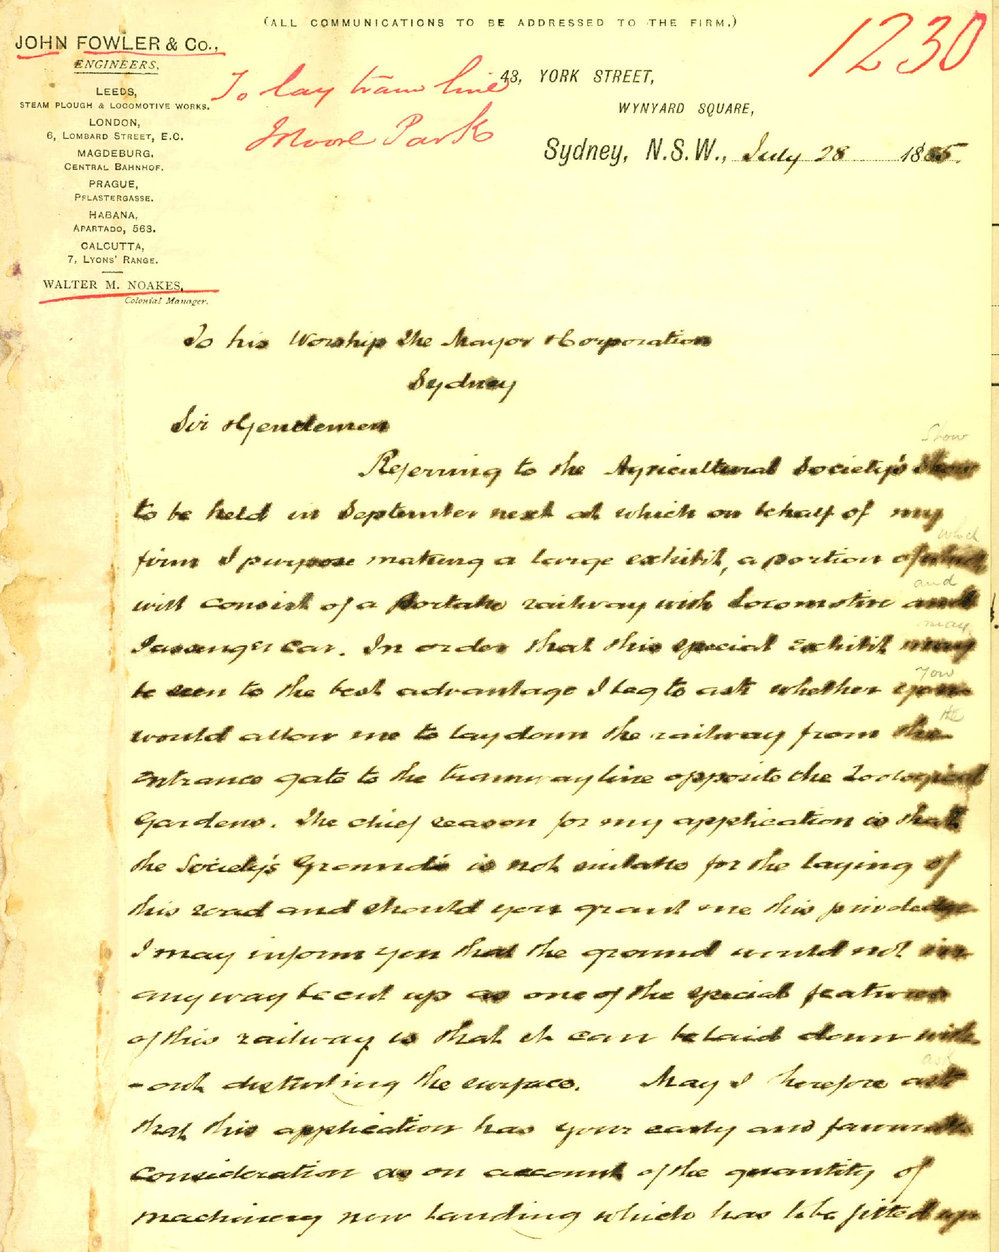 (ALL COMMUNICATIONS TO BE ADDRESSED TO THE FIRM.)
JOHN FOWLER & Co.,
ENGINEERS.
LEEDS,
STEAM PLOUGH & LOCOMOTIVE WORKS.
LONDON,
6, LOMBARD STREET, E.C.
MAGDEBURG,
CENTRAL BAHNHOF.
PRAGUE,
PFLASTERGASSE.
HABANA,
APARTADO, 563.
CALCUTTA,
7, LYONS' RANGE.
WALTER M. NOAKES,
Colonial Manager.
1230
To lay tram line
Moore Park
43, YORK STREET,
WYNYARD SQUARE,
Sydney, N.S.W., July 28 1885.
To his Worship The Mayor & Corporation
Sydney
Sir & Gentlemen
Show
Referring to the Agricultural Society's Show
to be held in September next at which on behalf of my
which
firm I purpose making a large exhibit, a portion of which
and
will consist of a Portable railway with Locomotive and
may
Passenger Car. In order that this special exhibit may
you
be seen to the best advantage I beg to ask whether you
the
would allow me to lay down the railway from the
entrance gate to the tramway line opposite the Zoological
Gardens. The chief reason for my application is that
the Society's Grounds is not suitable for the laying of
this road and should you grant me this priviledge
I may inform you that the ground would not in
any way be cut up as one of the special features
of this railway is that it can be laid down with
ask
-out disturbing the surface. May I therefore ask
that this application has your early and favourable
consideration as on account of the quantity of
machinery now landing which has to be fitted up